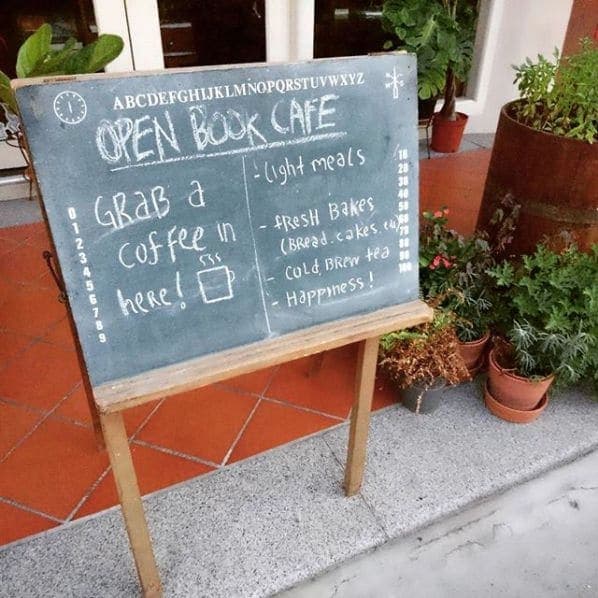 ABCDEFGHIJKLMNOPQRSTUVWXYZ
OPEN BOOK CAFE
GRaB a
coffee in
here!
- Light meals
- fResH Bakes
(BRead. cakes. etc)
- Cold BRew tea
- Happiness!
0
1
2
3
4
5
6
7
8
9
10
20
30
40
50
60
70
80
90
100